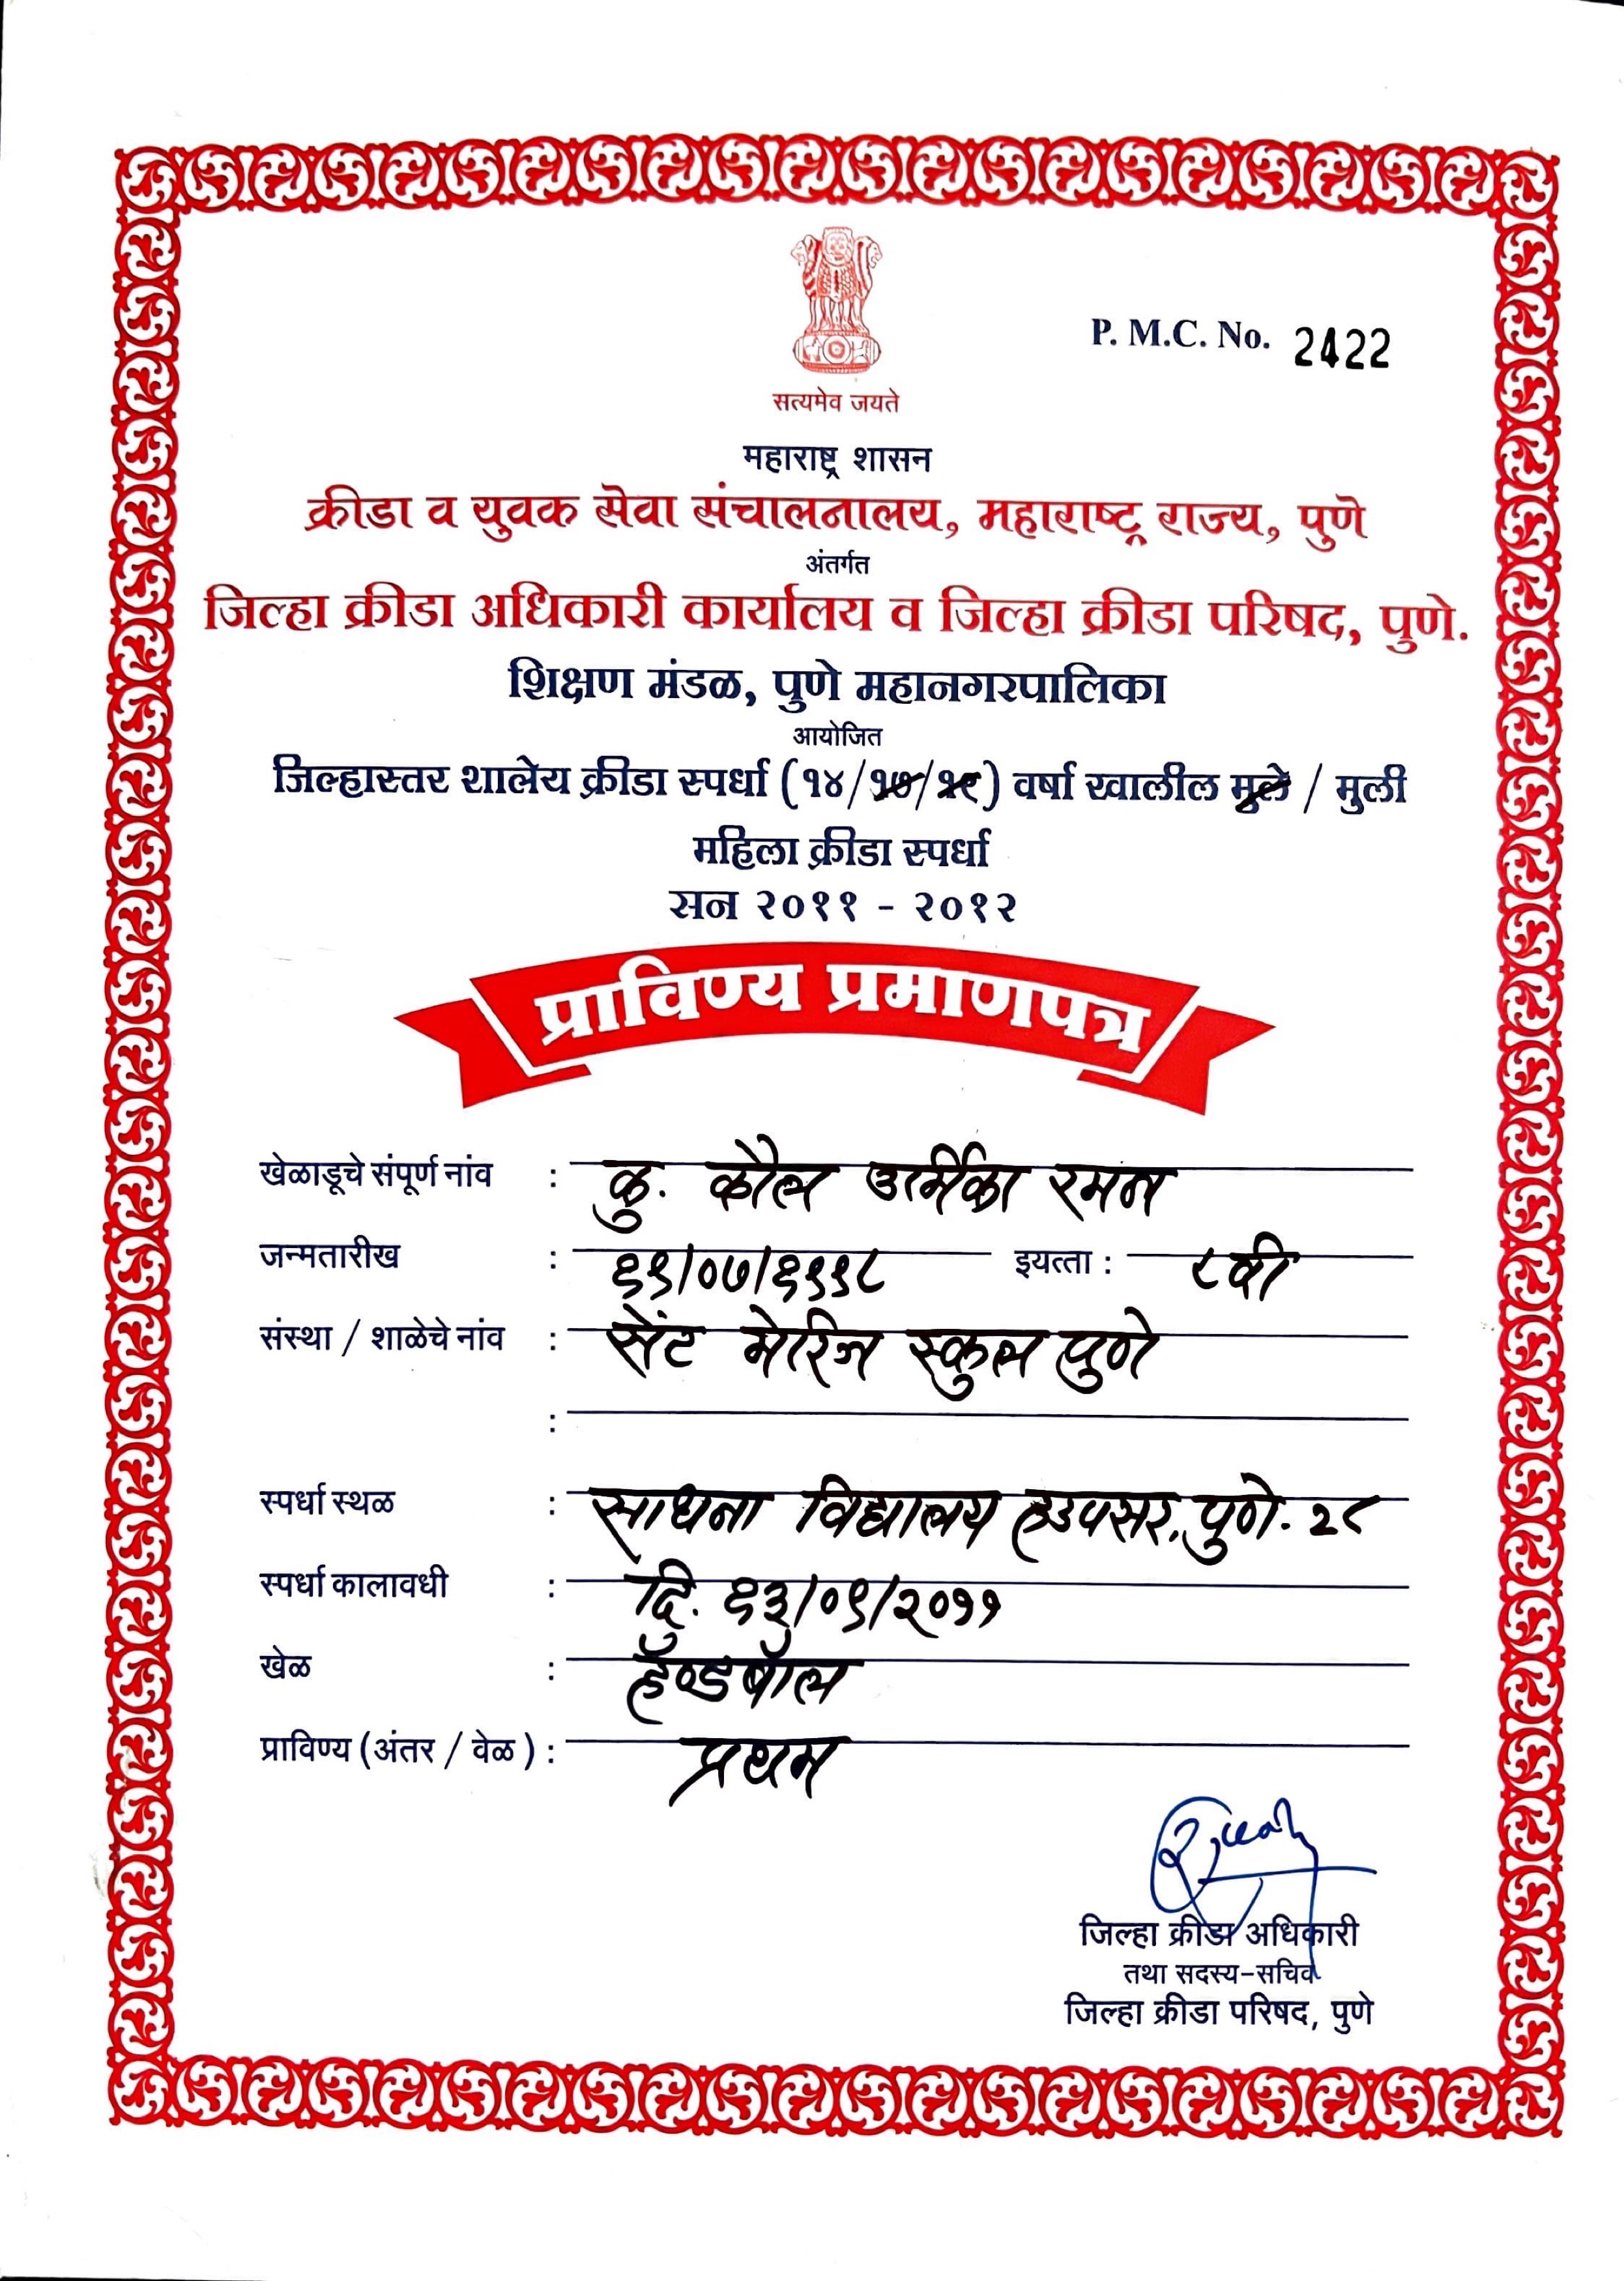 P. M.C. No. 2422
सत्यमेव जयते
महाराष्ट्र शासन
क्रीडा व युवक सेवा संचालनालय, महाराष्ट्र राज्य, पुणे
अंतर्गत
जिल्हा क्रीडा अधिकारी कार्यालय व जिल्हा क्रीडा परिषद, पुणे.
शिक्षण मंडळ, पुणे महानगरपालिका
आयोजित
जिल्हास्तर शालेय क्रीडा स्पर्धा (१४/१७/१९) वर्षा खालील मुले / मुली
महिला क्रीडा स्पर्धा
सन २०११ - २०१२
प्राविण्य प्रमाणपत्र
खेळाडूचे संपूर्ण नांव : कु. कौल उर्मिका रमन
जन्मतारीख : १९/०७/१९९८ इयत्ता : ८वी
संस्था / शाळेचे नांव : सेंट मेरिज स्कुल पुणे
:
स्पर्धा स्थळ : साधना विद्यालय हडपसर, पुणे. २८
स्पर्धा कालावधी : दि. १३/०९/२०११
खेळ : हॅण्डबॉल
प्राविण्य (अंतर / वेळ) : प्रथम
जिल्हा क्रीडा अधिकारी
तथा सदस्य-सचिव
जिल्हा क्रीडा परिषद, पुणे